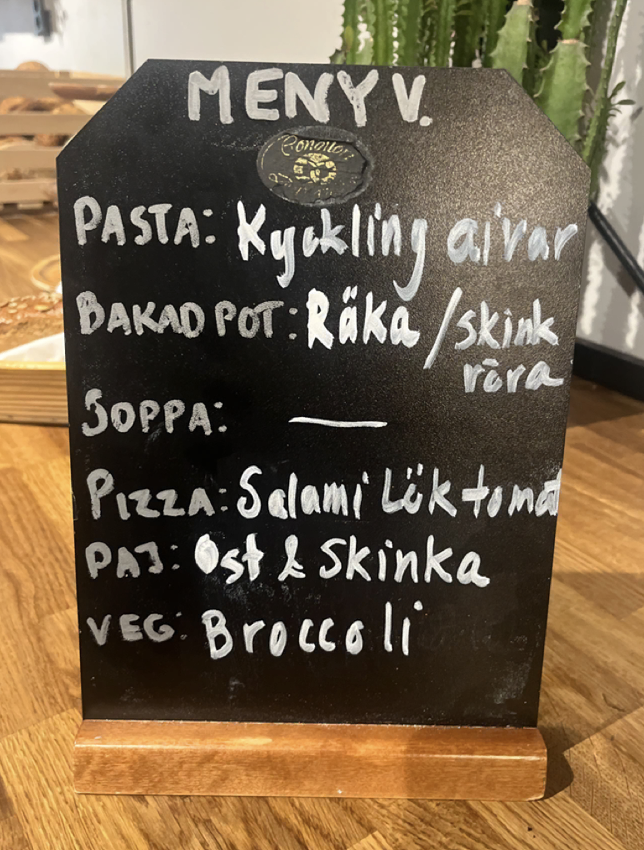 MENY V.
PASTA: Kyckling ajvar
BAKAD POT: Räka / skink
röra
SOPPA: —
PIZZA: Salami Lök tomat
PAJ: Ost & Skinka
VEG: Broccoli